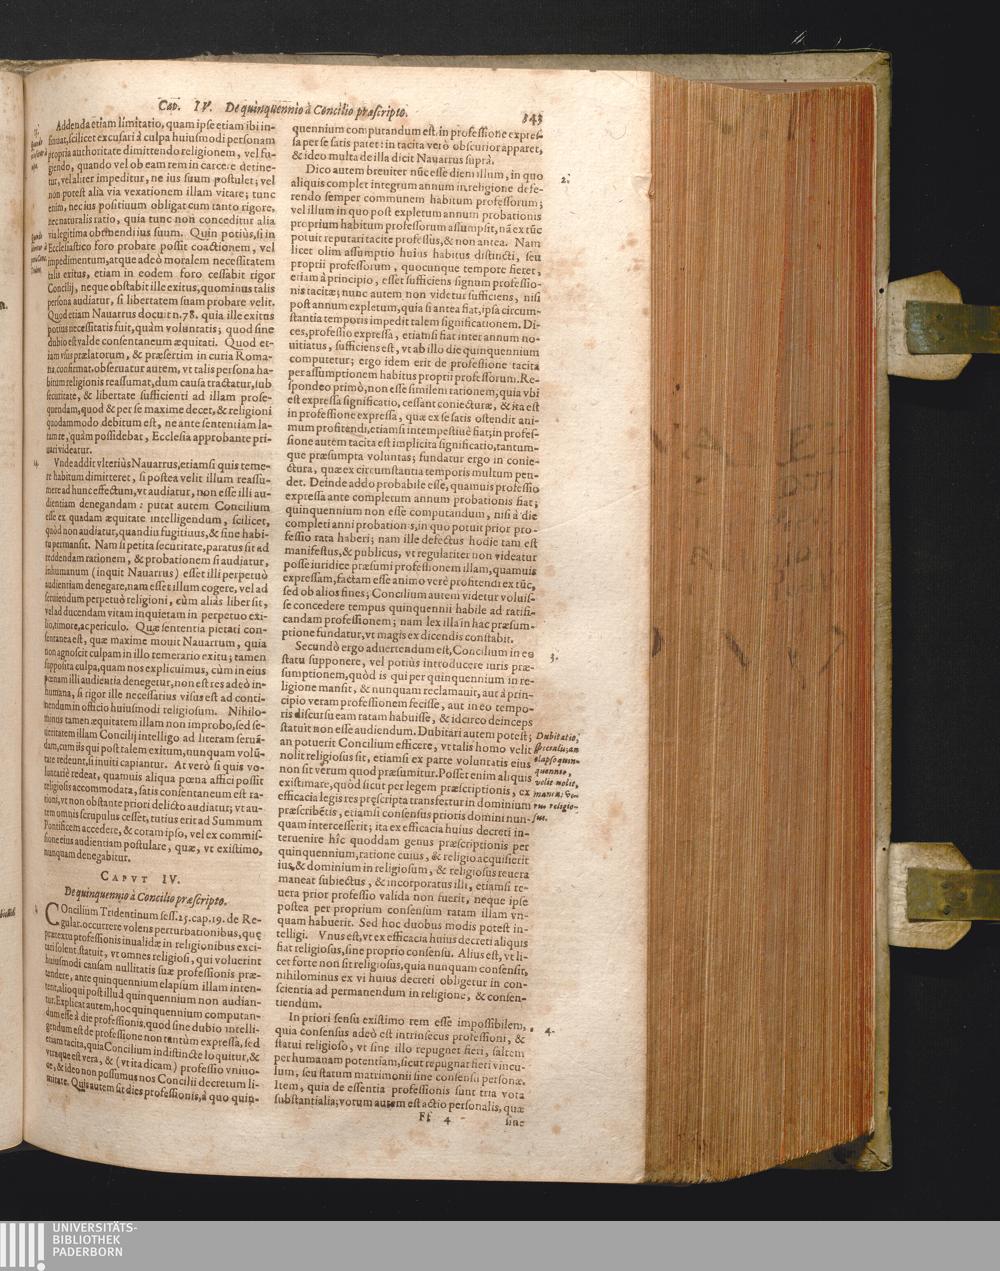 Cap. IV. De quinquennio à Concilio præscripto. 343
Addenda etiam limitatio, quam ipse etiam ibi in-
sinuat, scilicet excusari à culpa huiusmodi personam
propria authoritate dimittendo religionem, vel fu-
giendo, quando vel ob eam rem in carcere detine-
tur, vel aliter impeditur, ne ius suum postulet; vel
non potest alia via vexationem illam vitare; tunc
enim, nec ius positiuum obligat cum tanto rigore,
nec naturalis ratio, quia tunc non conceditur alia
via legitima obtinendi ius suum. Quin potiùs, si in
Ecclesiastico foro probare possit coactionem, vel
impedimentum, atque adeò moralem necessitatem
talis exitus, etiam in eodem foro cessabit rigor
Concilij, neque obstabit ille exitus, quominus talis
persona audiatur, si libertatem suam probare velit.
Quod etiam Nauarrus docuit n. 78. quia ille exitus
potius necessitatis fuit, quàm voluntatis; quod sine
dubio est valde consentaneum æquitati. Quod et-
iam vsus prælatorum, & præsertim in curia Roma-
na, confirmat. obseruatur autem, vt talis persona ha-
bitum religionis reassumat, dum causa tractatur, sub
securitate, & libertate sufficienti ad illam prose-
quendam, quod & per se maxime decet, & religioni
quodammodo debitum est, ne ante sententiam la-
tam re, quàm possidebat, Ecclesia approbante pri-
uari videatur.
Vnde addit vlteriùs Nauarrus, etiamsi quis teme-
re habitum dimitteret, si postea velit illum reassu-
mere ad hunc effectum, vt audiatur, non esse illi au-
dientiam denegandam: putat autem Concilium
esse ex quadam æquitate intelligendum, scilicet,
quòd non audiatur, quandiu fugitiuus, & sine habi-
tu permansit. Nam si petita securitate, paratus sit ad
reddendam rationem, & probationem si audiatur,
inhumanum (inquit Nauarrus) esset illi perpetuò
audientiam denegare, nam esset illum cogere, vel ad
seruiendum perpetuò religioni, cùm aliàs liber sit,
vel ad ducendam vitam inquietam in perpetuo exi-
lio, timore, ac periculo. Quæ sententia pietati con-
sentanea est, quæ maxime mouit Nauarrum, quia
non agnoscit culpam in illo temerario exitu; tamen
supposita culpa, quam nos explicuimus, cùm in eius
pœnam illi audientia denegetur, non est res adeò in-
humana, si rigor ille necessarius visus est ad conti-
nendum in officio huiusmodi religiosum. Nihilo-
minus tamen æquitatem illam non improbo, sed se-
ueritatem illam Concilij intelligo ad literam seruā-
dam, cum iis qui post talem exitum, nunquam volū-
tate redeunt, si inuiti capiantur. At verò si quis vo-
luntariè redeat, quamuis aliqua pœna affici possit
religiosis accommodata, satis consentaneum est ra-
tioni, vt non obstante priori delicto audiatur; vt au-
tem omnis scrupulus cesset, tutius erit ad Summum
Pontificem accedere, & coram ipso, vel ex commis-
sione eius audientiam postulare, quæ, vt existimo,
nunquam denegabitur.
CAPVT IV.
De quinquennio à Concilio præscripto.
COncilium Tridentinum sess. 25. cap. 19. de Re-
gular. occurrere volens perturbationibus, quę
prætextu professionis inualidæ in religionibus exci-
tari solent, statuit, vt omnes religiosi, qui voluerint
huiusmodi causam nullitatis suæ professionis præ-
tendere, ante quinquennium elapsum illam inten-
tent, alioqui post illud quinquennium non audian-
tur. Explicat autem, hoc quinquennium computan-
dum esse à die professionis, quod sine dubio intelli-
gendum est de professione non tantùm expressa, sed
etiam tacita, quia Concilium indistincte loquitur, &
vtraque est vera, & (vt ita dicam) professio vniuo-
ce, & ideo non possumus nos Concilii decretum li-
mitare. Quis autem sit dies professionis, à quo quin-
quennium computandum est, in professione expres-
sa per se satis patet: in tacita verò obscurior apparet,
& ideo multa de illa dicit Nauarrus suprà.
2.
Dico autem breuiter nūc esse diem illum, in quo
aliquis complet integrum annum in religione defe-
rendo semper communem habitum professorum;
vel illum in quo post expletum annum probationis
proprium habitum professorum assumpsit, nā ex tūc
potuit reputari tacite professus, & non antea. Nam
licet olim assumptio huius habitus distincti, seu
proprii professorum, quocunque tempore fieret,
etiam à principio, esset sufficiens signum professio-
nis tacitæ; nunc autem non videtur sufficiens, nisi
post annum expletum, quia si antea fiat, ipsa circum-
stantia temporis impedit talem significationem. Di-
ces, professio expressa, etiamsi fiat inter annum no-
uitiatus, sufficiens est, vt ab illo die quinquennium
computetur; ergo idem erit de professione tacita
per assumptionem habitus proprii professorum. Re-
spondeo primò, non esse similem rationem, quia vbi
est expressa significatio, cessant coniecturæ, & ita est
in professione expressa, quæ ex se satis ostendit ani-
mum profitendi, etiamsi intempestiuè fiat; in profes-
sione autem tacita est implicita significatio, tantum-
que præsumpta voluntas; fundatur ergo in conie-
ctura, quæ ex circumstantia temporis multum pen-
det. Deinde addo probabile esse, quamuis professio
expressa ante completum annum probationis fiat;
quinquennium non esse computandum, nisi à die
completi anni probationis, in quo potuit prior pro-
fessio rata haberi; nam ille defectus hodie tam est
manifestus, & publicus, vt regulariter non videatur
posse iuridice præsumi professionem illam, quamuis
expressam, factam esse animo verè profitendi ex tūc,
sed ob alios fines; Concilium autem videtur voluis-
se concedere tempus quinquennii habile ad ratifi-
candam professionem; nam lex illa in hac præsum-
ptione fundatur, vt magis ex dicendis constabit.
3.
Secundò ergo aduertendum est, Concilium in eo
statu supponere, vel potiùs introducere iuris præ-
sumptionem, quòd is qui per quinquennium in re-
ligione mansit, & nunquam reclamauit, aut à prin-
cipio veram professionem fecisse, aut in eo tempo-
ris discursu eam ratam habuisse, & idcirco deinceps
statuit non esse audiendum. Dubitari autem potest;
an potuerit Concilium efficere, vt talis homo velit
nolit religiosus sit, etiamsi ex parte voluntatis eius
non sit verum quod præsumitur. Posset enim aliquis
existimare, quòd sicut per legem præscriptionis, ex
efficacia legis res pręscripta transfertur in dominium
præscribētis, etiamsi consensus prioris domini nun-
quam intercesserit; ita ex efficacia huius decreti in-
teruenire hîc quoddam genus præscriptionis per
quinquennium, ratione cuius, & religio acquisierit
ius, & dominium in religiosum, & religiosus reuera
maneat subiectus, & incorporatus illi, etiamsi re-
uera prior professio valida non fuerit, neque ipse
postea per proprium consensum ratam illam vn-
quam habuerit. Sed hoc duobus modis potest in-
telligi. Vnus est, vt ex efficacia huius decreti aliquis
fiat religiosus, sine proprio consensu. Alius est, vt li-
cet forte non sit religiosus, quia nunquam consensit,
nihilominus ex vi huius decreti obligetur in con-
scientia ad permanendum in religione, & consen-
tiendum.
Dubitatio,
an
elapso quin-
quennio,
velit nolit,
religio-
sus.
4.
In priori sensu existimo rem esse impossibilem,
quia consensus adeò est intrinsecus professioni, &
statui religioso, vt sine illo repugnet fieri, saltem
per humanam potentiam, sicut repugnat fieri vincu-
lum, seu statum matrimonii sine consensu personæ.
Item, quia de essentia professionis sunt tria vota
substantialia; votum autem est actio personalis, quæ
Ff 4 sine
UNIVERSITÄTS-
BIBLIOTHEK
PADERBORN